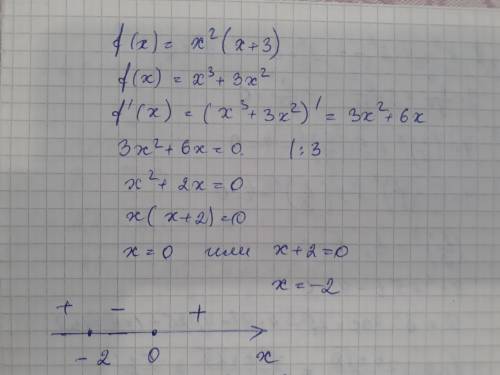 f(x) = x²(x+3)
f(x) = x³+3x²
f'(x) = (x³+3x²)' = 3x²+6x
3x²+6x=0. |:3
x²+2x=0
x(x+2)=0
x=0 или x+2=0
x=-2
+ - +
-2 0 x